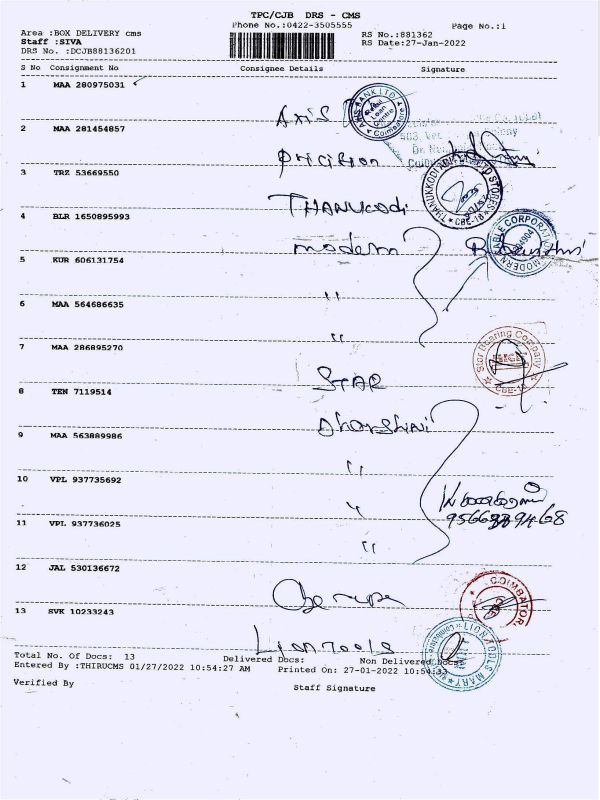 TPC/CJB DRS - CMS
Phone No.:0422-3505555
Page No.:1
Area :BOX DELIVERY cms
RS No.:881362
Staff :SIVA
RS Date:27-Jan-2022
DRS No. :DCJB88136201
S No Consignment No Consignee Details Signature
1 MAA 280975031
Axis
AXIS BANK LTD
Retail Loan Centre
Coimbatore
2 MAA 281454857
Pricision
3 TRZ 53669550
THANUKODI
STORES
CBE-18
4 BLR 1650895993
modern
CORPORATION
MODERN
5 KUR 606131754
"
6 MAA 564686635
"
7 MAA 286895270
STAR
Star Bearing Company
CBE-18
8 TEN 7119514
Dharshini
9 MAA 563889986
"
10 VPL 937735692
"
11 VPL 937736025
"
12 JAL 530136672
COIMBATORE
13 SVK 10233243
Lion Tools
LION TOOLS MART
Coimbatore
Total No. Of Docs: 13 Delivered Docs: Non Delivered Docs:
Entered By :THIRUCMS 01/27/2022 10:54:27 AM Printed On: 27-01-2022 10:54:33
Verified By
Staff Signature